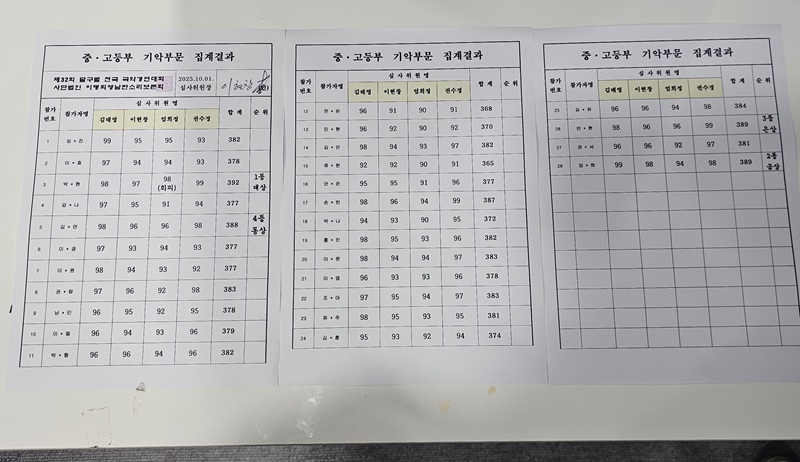 중·고등부 기악부문 집계결과
제32회 달구벌 전국 국악경연대회
사단법인 이명희영남판소리보존회
2025.10.01.
심사위원장
참가번호 참가자명 심사위원명 합계 순위
김태영 이현창 임희정 권수정
1 99 95 95 93 382
2 이*호 97 94 94 93 378
3 박*환 98 97 98 (회피) 99 392 1등 대상
4 김*나 97 95 91 94 377
5 김*연 98 96 96 98 388 4등 동상
6 이*경 97 93 94 93 377
7 이*원 98 94 93 92 377
8 권*람 97 96 92 98 383
9 남*민 96 95 92 95 378
10 이*별 96 94 93 96 379
11 박*형 96 96 94 96 382
중·고등부 기악부문 집계결과
참가번호 참가자명 심사위원명 합계 순위
김태영 이현창 임희정 권수정
12 전*은 96 91 90 91 368
13 민*현 96 92 90 92 370
14 김*민 98 94 93 97 382
15 류*환 92 92 90 91 365
16 안*은 95 95 91 96 377
17 손*빈 98 96 94 99 387
18 박*나 94 93 90 95 372
19 홍*민 98 95 93 96 382
20 이*운 98 94 94 97 383
21 이*염 96 93 93 96 378
22 조*아 97 95 94 97 383
23 류*주 98 95 93 95 381
24 김*훈 95 93 92 94 374
중·고등부 기악부문 집계결과
참가번호 참가자명 심사위원명 합계 순위
김태영 이현창 임희정 권수정
25 김*원 96 96 94 98 384
26 안*현 98 96 96 99 389 3등 은상
27 권*서 96 96 92 97 381
28 임*하 99 98 94 98 389 2등 금상